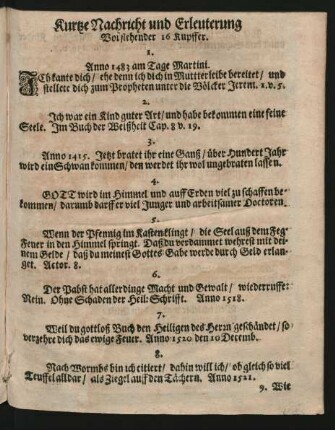 Kurtze Nachricht und Erleuterung
Vorstehender 16 Kupffer.
1.
Anno 1483 am Tage Martini.
ICh kante dich / ehe denn ich dich in Mutterleibe bereitet / und
stellete dich zum Propheten unter die Völcker Jerem. 1. v. 5.
2.
Ich war ein Kind guter Art / und habe bekommen eine feine
Seele. Im Buch der Weißheit Cap. 8 v. 19.
3.
Anno 1415. Jetzt bratet ihr eine Ganß / über Hundert Jahr
wird ein Schwan kommen / den werdet ihr wol ungebraten lassen.
4.
GOTT wird im Himmel und auff Erden viel zu schaffen be-
kommen / darumb darff er viel Junger und arbeitsamer Doctoren.
5.
Wenn der Pfennig im Kasten klingt / die Seel auß dem Feg-
Feuer in den Himmel springt. Daß du verdammet wehrest mit dei-
nem Gelde / daß du meinest Gottes Gabe werde durch Geld erlan-
get. Actor. 8.
6.
Der Pabst hat allerdinge Macht und Gewalt / wiederruffe:
Nein. Ohne Schaden der Heil: Schrifft. Anno 1518.
7.
Weil du gottloß Buch den Heiligen des Herrn geschändet / so
verzehre dich das ewige Feuer. Anno 1520 den 10 Decemb.
8.
Nach Wormbs bin ich citiert / dahin will ich / ob gleich so viel
Teuffel alldar / als Ziegel auff den Tächern. Anno 1521.
9. Wie